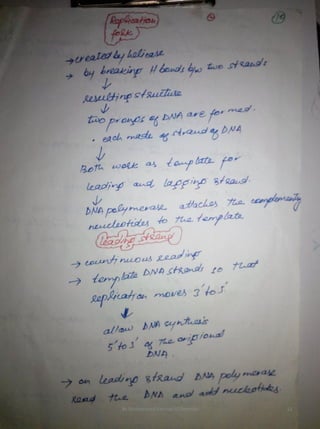 Replication
fork
10
→ created by helicase
→ by breaking H bonds b/w two strands
↓
resulting structure
↓
two prongs of DNA are formed.
• each made of strand of DNA
↓
Both work as template for
leading and lagging strand.
↓
DNA polymerase attaches the complementy
neucleotides to the template
leading strand
→ countinuous reading
→ template DNA strands so that
replication moves 3' to 5'
↓
allow DNA synthesis
5' to 3' of the original
DNA
→ on leading strand DNA polymerase
read the DNA and add nucleotides.